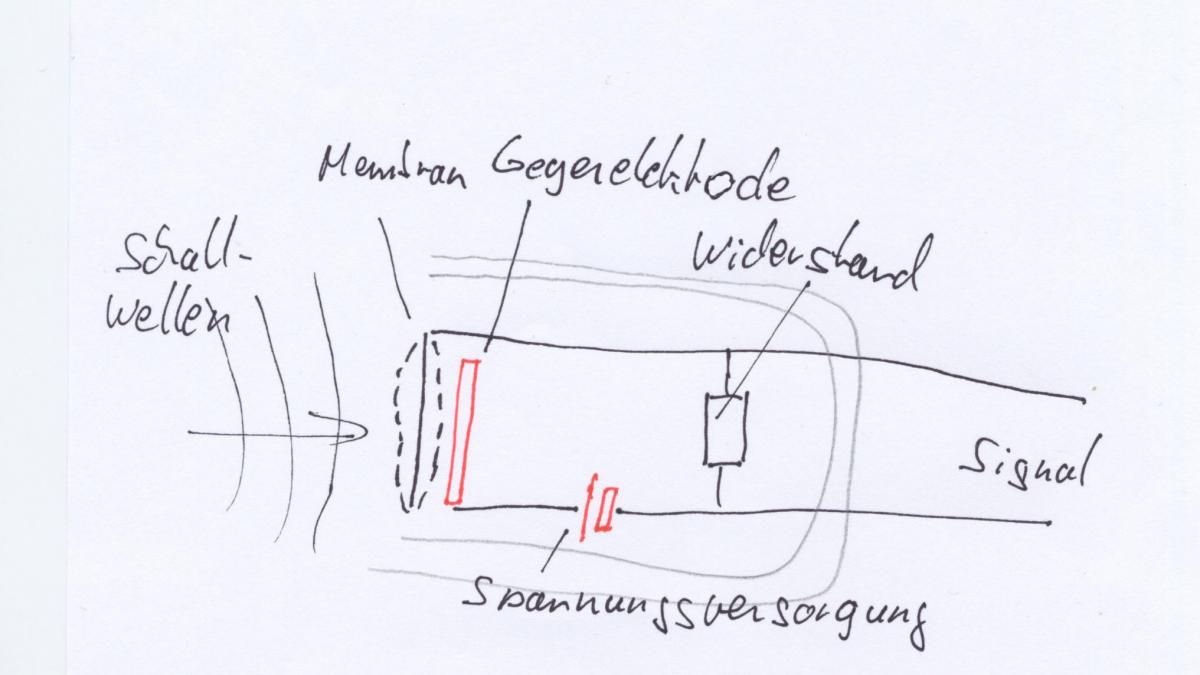 Membran Gegenelektrode
Schall-
wellen
Widerstand
Signal
Spannungsversorgung